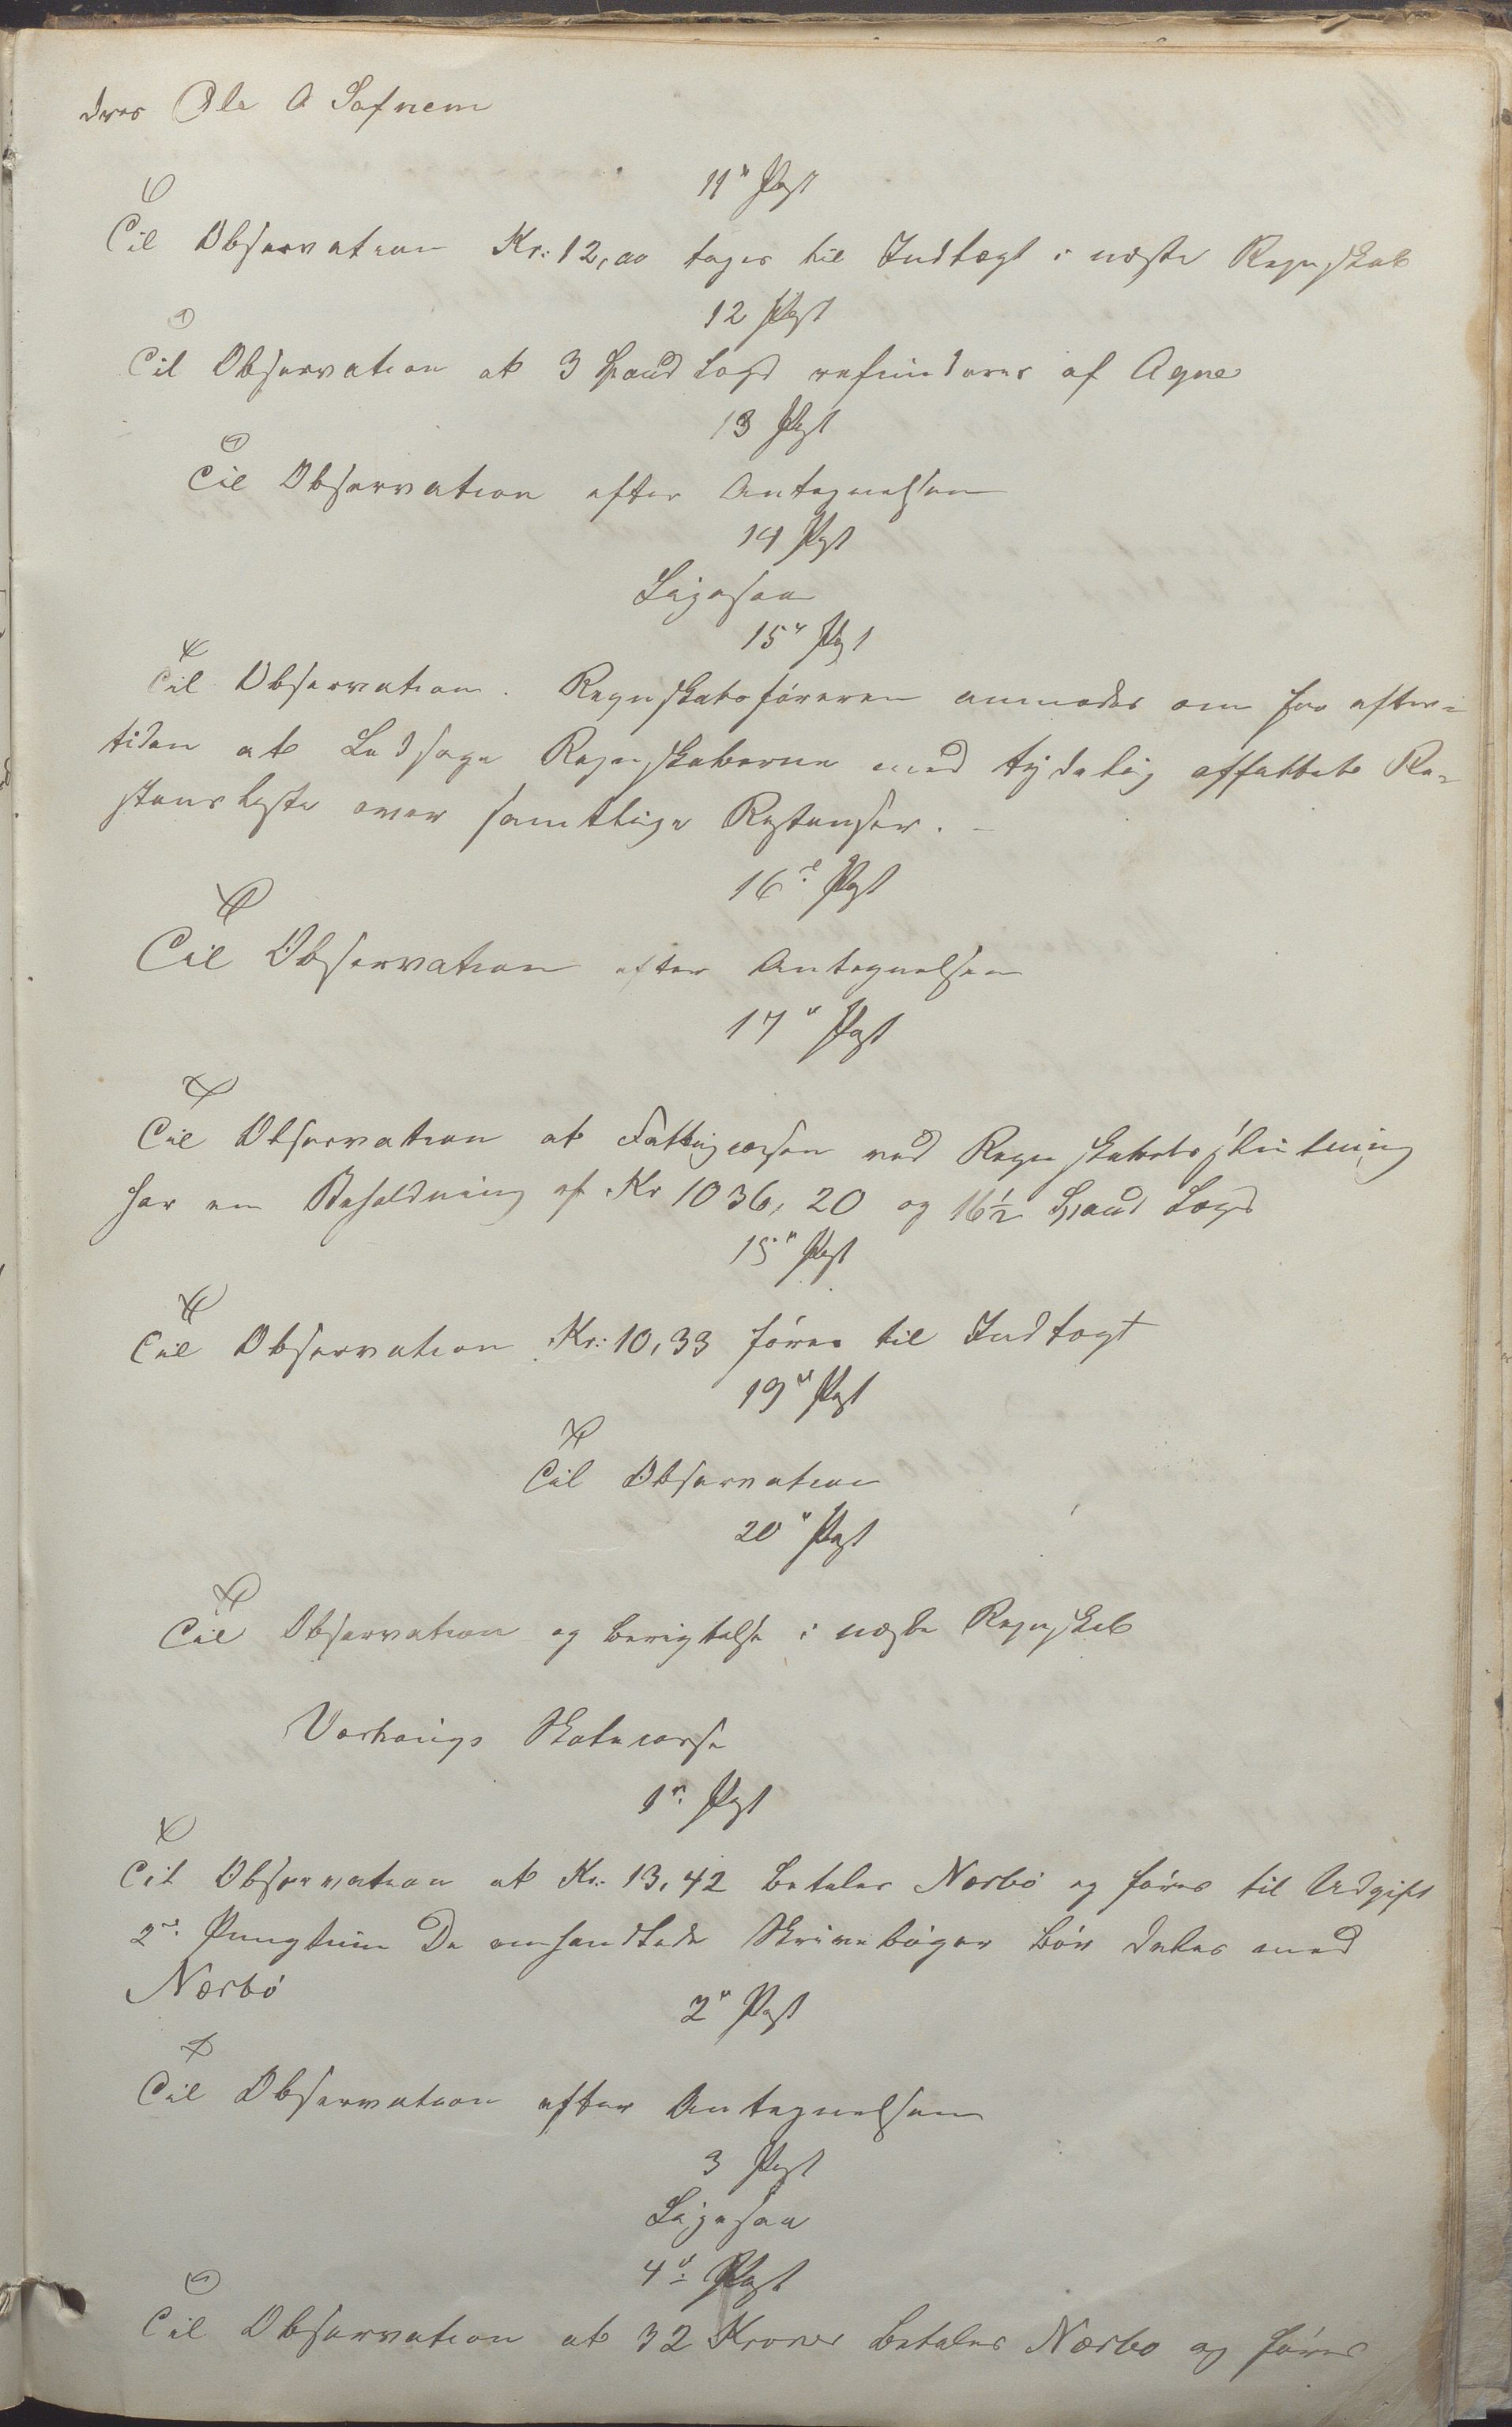 dres Ole A Søfnem
11te Post
Til Observation Kr: 12,00 tages til Indtægt i næste Regnskab
12 Post
Til Observation at 3 Spand Lægd refunderes af Ogne
13 Post
Til Observation efter Antegnelsen
14 Post
Ligesaa
15de Post
Til Observation. Regnskabsføreren anmodes om for efter-
tiden at Ledsage Regnskaberne med tydelig affattet Re-
stanseliste over samtlige Restanser. -
16de Post
Til Observation efter Antegnelsen
17de Post
Til Observation at Fattigcassen ved Regnskabets slutning
har en Beholdning af Kr 1036,20 og 16½ Spand Lægd
18de Post
Til Observation Kr: 10,33 føres til Indtægt
19de Post
Til Observation
20de Post
Til Observation og berigtelse i næste Regnskab
Varhougs Skolecasse
1ste Post
Til Observation at Kr: 13,42 betales Nærbø og føres til Udgift
2det Pungtum De omhandlede Skrivebøger bør deles med
Nærbø
2den Post
Til Observation efter Antegnelsen
3 Post
Ligesaa
4de Post
Til Observation at 32 Kroner betales Nærbø og føres